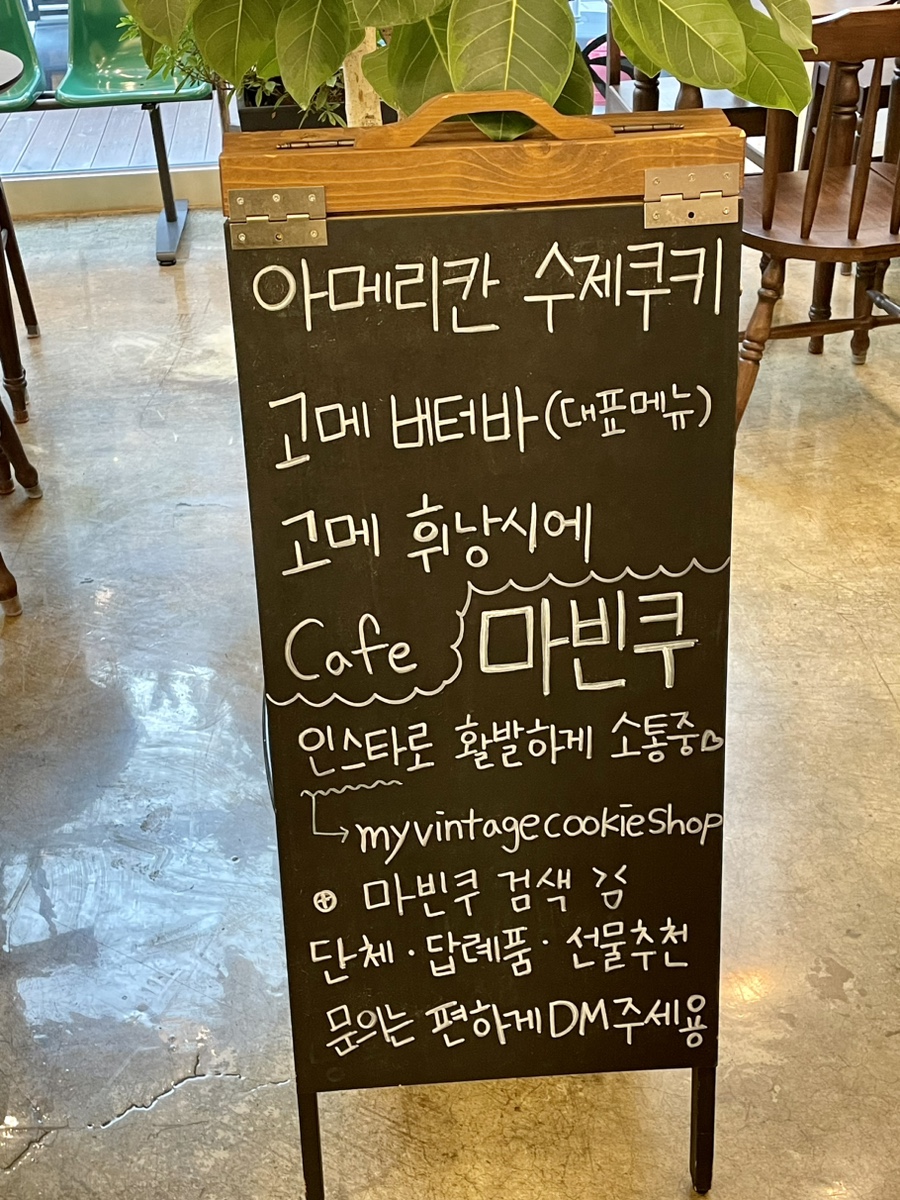 아메리칸 수제쿠키
고메 버터바 (대표메뉴)
고메 휘낭시에
Cafe 마빈쿠
인스타로 활발하게 소통중♡
→ myvintagecookieshop
⊕ 마빈쿠 검색 >ᆺ<
단체·답례품·선물추천
문의는 편하게 DM주세용